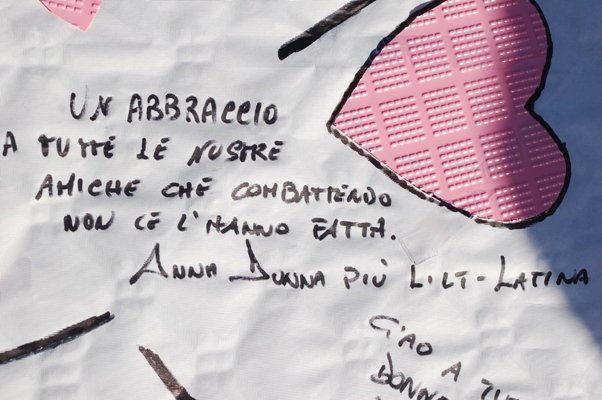 UN ABBRACCIO
A TUTTE LE NOSTRE
AMICHE CHE COMBATTENDO
NON CE L'HANNO FATTA.
ANNA DONNA PIÙ LILT-LATINA
CIAO A
DONNE